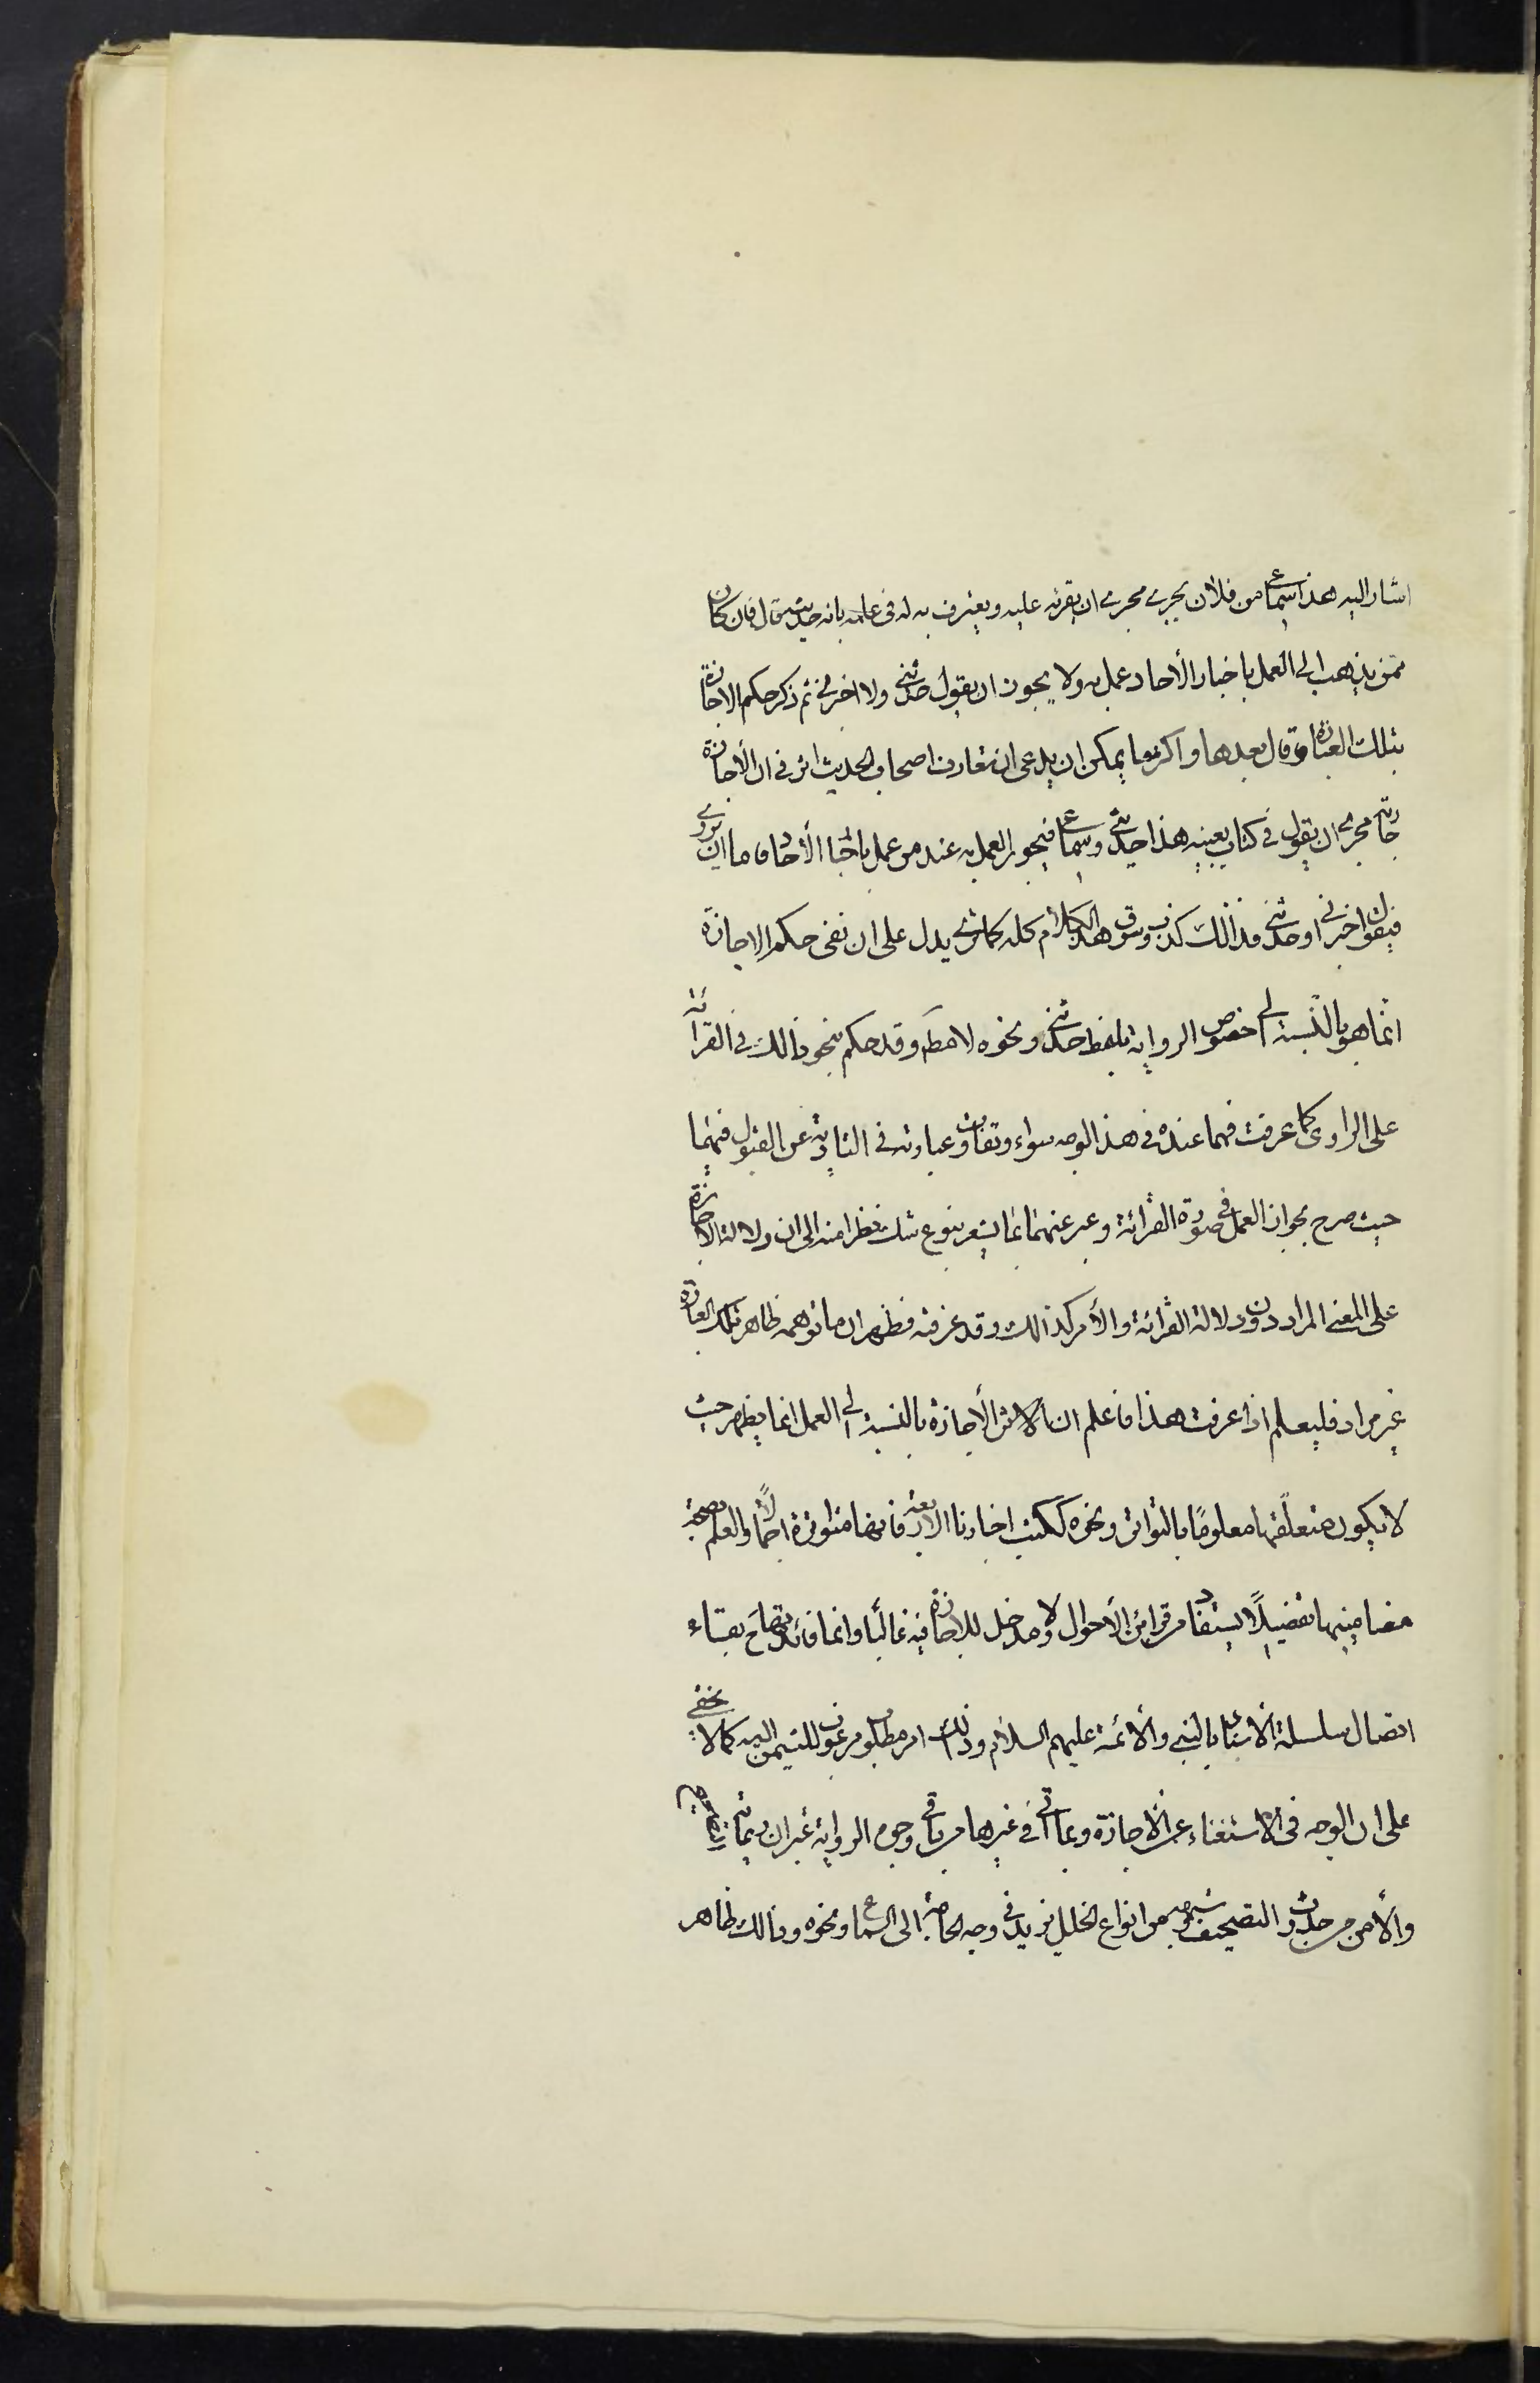 اشار اليه هذا سماعي من فلان يجري مجرى ان يقرئه عليه ويعترف به له في علمه بانه حديثه قال فان كان
ممن يذهب الى العمل باخبار الأحاد عمل به ولا يجوز ان يقول حدثني ولا اخبرني ثم ذكر حكم الاجازة
بتلك العبارة وقال بعدها واكثر ما يمكن ان يدعى ان تعارف اصحاب الحديث اثر في ان الأجازة
جارية مجرى ان يقول في كتاب بعينه هذا حديثي وسماعي فيجوز العمل به عند من عمل باخبار الأحاد فاما ان يروي
فيقول اخبرني او حدثني فذلك كذب وسوق هذا الكلام كله كما ترى يدل على ان نفى حكم الاجازة
انما هو بالنسبة الى خصوص الرواية بلفظ حدثني ونحوه لا مطم وقد حكم بنحو ذالك في القرائة
على الراوى كما عرفت فهما عنده في هذا الوجه سواء وتفاوت عبارته في التادية عن القبول فيهما
حيث صرح بجواز العمل في صورة القرائة وعبر عنهما بما يشعر بنوع شك نظرا منه الى ان دلالة الاجازة
على المعنى المراد دون دلالة القرائة والأمر كذالك وقد عرفته فظهر ان ما توهمه ظاهر تلك العبارة
غير مراد فليعلم اذا عرفت هذا فاعلم ان اثر الأجازة بالنسبة الى العمل انما يظهر حيث
لا يكون متعلقها معلومًا بالتواتر ونحوه ككتب اخبارنا الاربعة فانها متواترة اجمالًا والعلم بصحة
مضامينها تفصيلًا يستفاد من قرائن الأحوال ولا مدخل للاجازة فيه غالبا وانما فائدتها ح بقاء
اتصال سلسلة الاسناد بالنبي والأئمة عليهم السلام وذلك امر مطلوب مرغوب اليه للتيمن كما لا يخفى
على ان الوجه في الاستغناء عن الأجازة ربما اتى في غيرها من باقي وجوه الرواية غير ان رعاية التصحيح
والأمن من حدوث التصحيف وشبهه من انواع الخلل يزيد في وجه الحاجة الى السماع ونحوه وذالك ظاهر